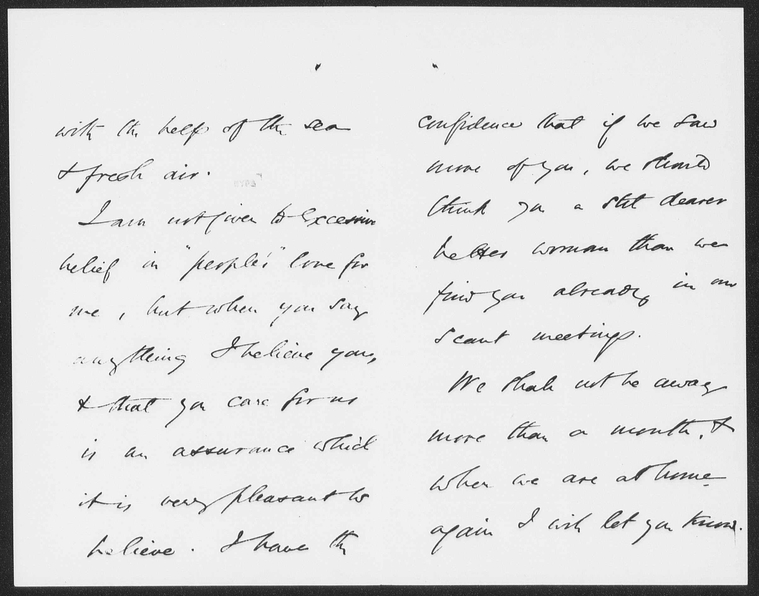 with the help of the sea
& fresh air.
I am not given to excessive
belief in "people's" love for
me, but when you say
anything I believe you,
& that you care for us
is an assurance which
it is very pleasant to
believe. I have the
confidence that if we saw
more of you, we should
think you a still dearer
better woman than we
find you already in our
scant meetings.
We shall not be away
more than a month, &
when we are at home
again I will let you know.